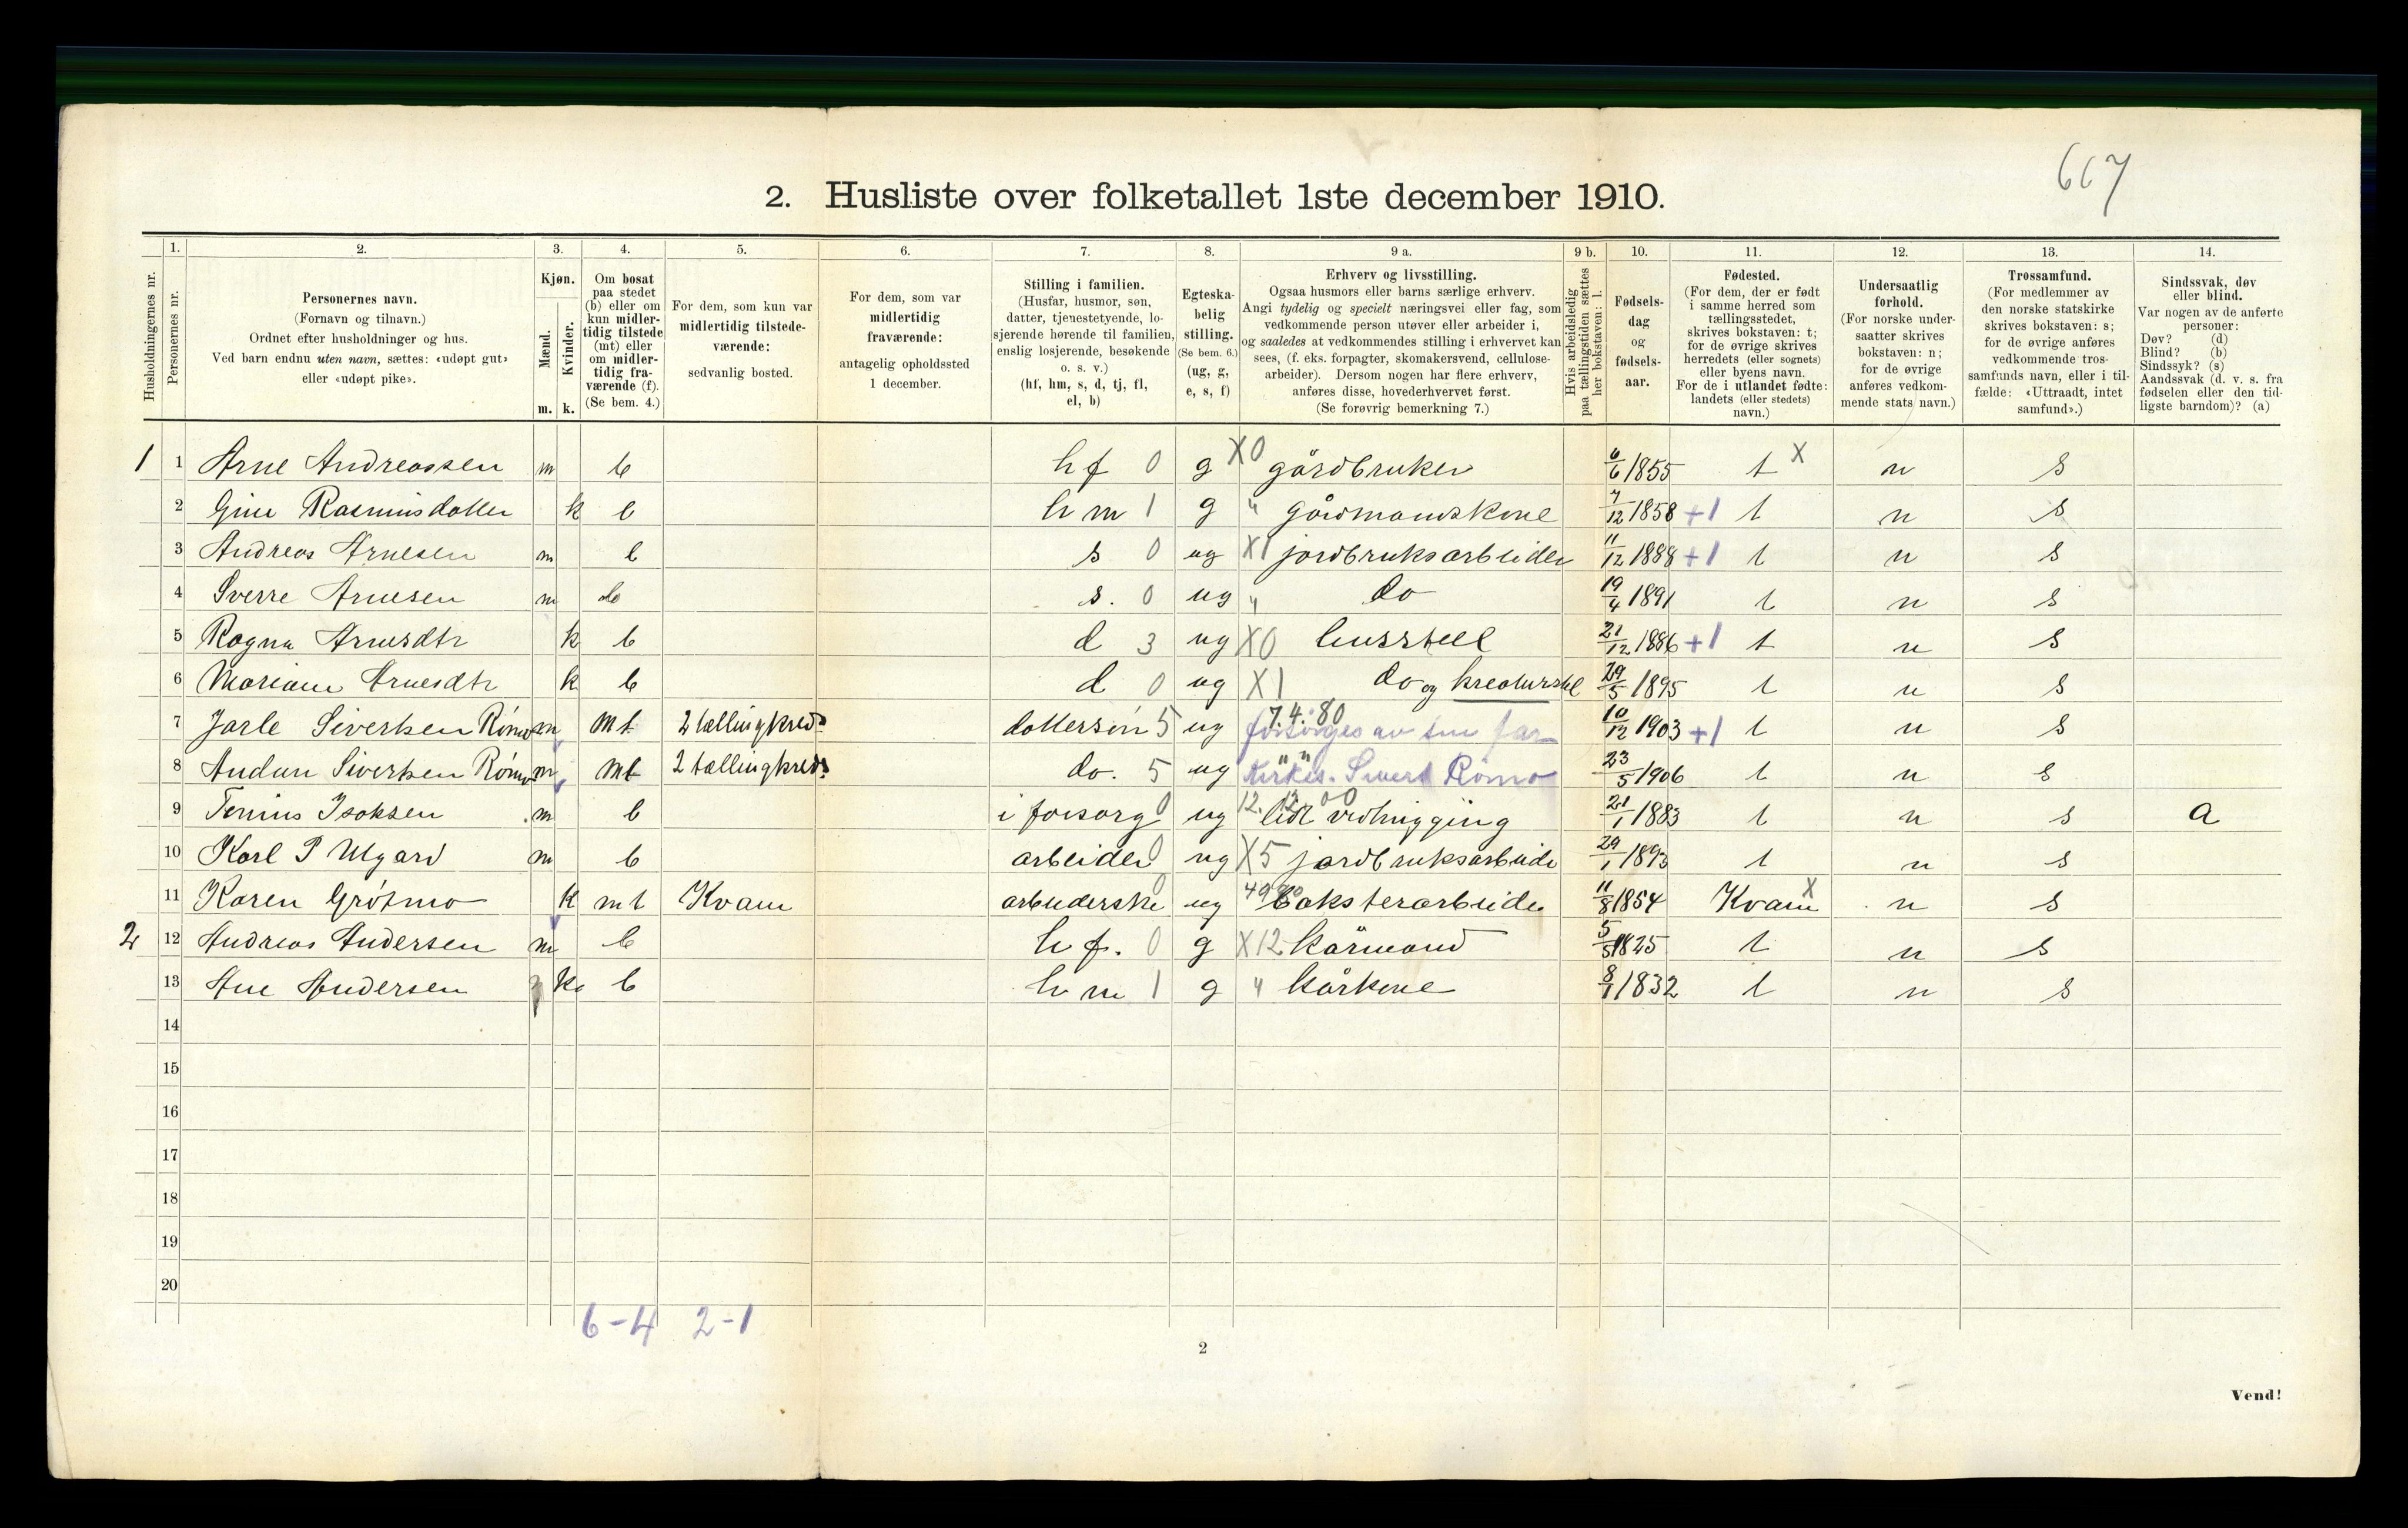 667
2. Husliste over folketallet 1ste december 1910.
Husholdningernes nr.
1.
Personernes nr.
2.
Personernes navn.
(Fornavn og tilnavn.)
Ordnet efter husholdninger og hus.
Ved barn endnu uten navn, sættes: «udøpt gut»
eller «udøpt pike».
3.
Kjøn.
Mænd.
Kvinder.
m. k.
4.
Om bosat
paa stedet
(b) eller om
kun midler-
tidig tilstede
(mt) eller
om midler-
tidig fra-
værende (f).
(Se bem. 4.)
5.
For dem, som kun var
midlertidig tilstede-
værende:
sedvanlig bosted.
6.
For dem, som var
midlertidig
fraværende:
antagelig opholdssted
1 december.
7.
Stilling i familien.
(Husfar, husmor, søn,
datter, tjenestetyende, lo-
sjerende hørende til familien,
enslig losjerende, besøkende
o. s. v.)
(hf, hm, s, d, tj, fl,
el, b)
8.
Egteska-
belig
stilling.
(Se bem. 6.)
(ug, g,
e, s, f)
9 a.
Erhverv og livsstilling.
Ogsaa husmors eller barns særlige erhverv.
Angi tydelig og specielt næringsvei eller fag, som
vedkommende person utøver eller arbeider i,
og saaledes at vedkommendes stilling i erhvervet kan
sees, (f. eks. forpagter, skomakersvend, cellulose-
arbeider). Dersom nogen har flere erhverv,
anføres disse, hovederhvervet først.
(Se forøvrig bemerkning 7.)
9 b.
Hvis arbeidsledig
paa tællingstiden sættes
her bokstaven: l.
10.
Fødsels-
dag
og
fødsels-
aar.
11.
Fødested.
(For dem, der er født
i samme herred som
tællingsstedet,
skrives bokstaven: t;
for de øvrige skrives
herredets (eller sognets)
eller byens navn.
For de i utlandet fødte:
landets (eller stedets)
navn.)
12.
Undersaatlig
forhold.
(For norske under-
saatter skrives
bokstaven: n;
for de øvrige
anføres vedkom-
mende stats navn.)
13.
Trossamfund.
(For medlemmer av
den norske statskirke
skrives bokstaven: s;
for de øvrige anføres
vedkommende tros-
samfunds navn, eller i til-
fælde: «Uttraadt, intet
samfund».)
14.
Sindssvak, døv
eller blind.
Var nogen av de anførte
personer:
Døv? (d)
Blind? (b)
Sindssyk? (s)
Aandssvak (d. v. s. fra
fødselen eller den tid-
ligste barndom)? (a)
1 1 Arne Andreassen m b hf 0 g X0 gårdbruker 6/6 1855 t X n s
2 Gine Rasmusdatter k b hm 1 g " gårdmandskone 7/12 1858 +1 t n s
3 Andreas Arnesen m b s 0 ug X1 jordbruksarbeider 11/12 1888 +1 t n s
4 Sverre Arnesen m b s. 0 ug " do 19/4 1891 t n s
5 Ragna Arnesdtr k b d 3 ug X0 husstell 21/12 1886 +1 t n s
6 Mariane Arnesdtr k b d 0 ug X1 do og kreaturstel 29/5 1895 t n s
7 Jarle Sivertsen Rømo m mt 2 tællingkreds dattersøn 5 ug 7.4.80 forsørges av sin far 10/12 1903 +1 t n s
8 Audun Sivertsen Rømo m mt 2 tællingkreds do. 5 ug " " Sivert Rømo 23/5 1906 t n s
9 Isaksen m b i forsorg 0 ug 12. 12 00 vedhugging 21/1 1883 t n s a
10 Karl P Ulgard m b arbeider 0 ug X5 jordbruksarbeide 29/1 1893 t n s
11 Karen Grøtmo k mt Kvam arbeiderske 0 ug baksterarbeide 11/8 1854 Kvam X n s
2 12 Andreas Andersen m b hf. 0 g X12 kårmand 5/5 1825 t n s
13 Ane Andersen k b hm 1 g " kårkone 8/1 1832 t n s
14
15
16
17
18
19
20
6-4 2-1
2
Vend!